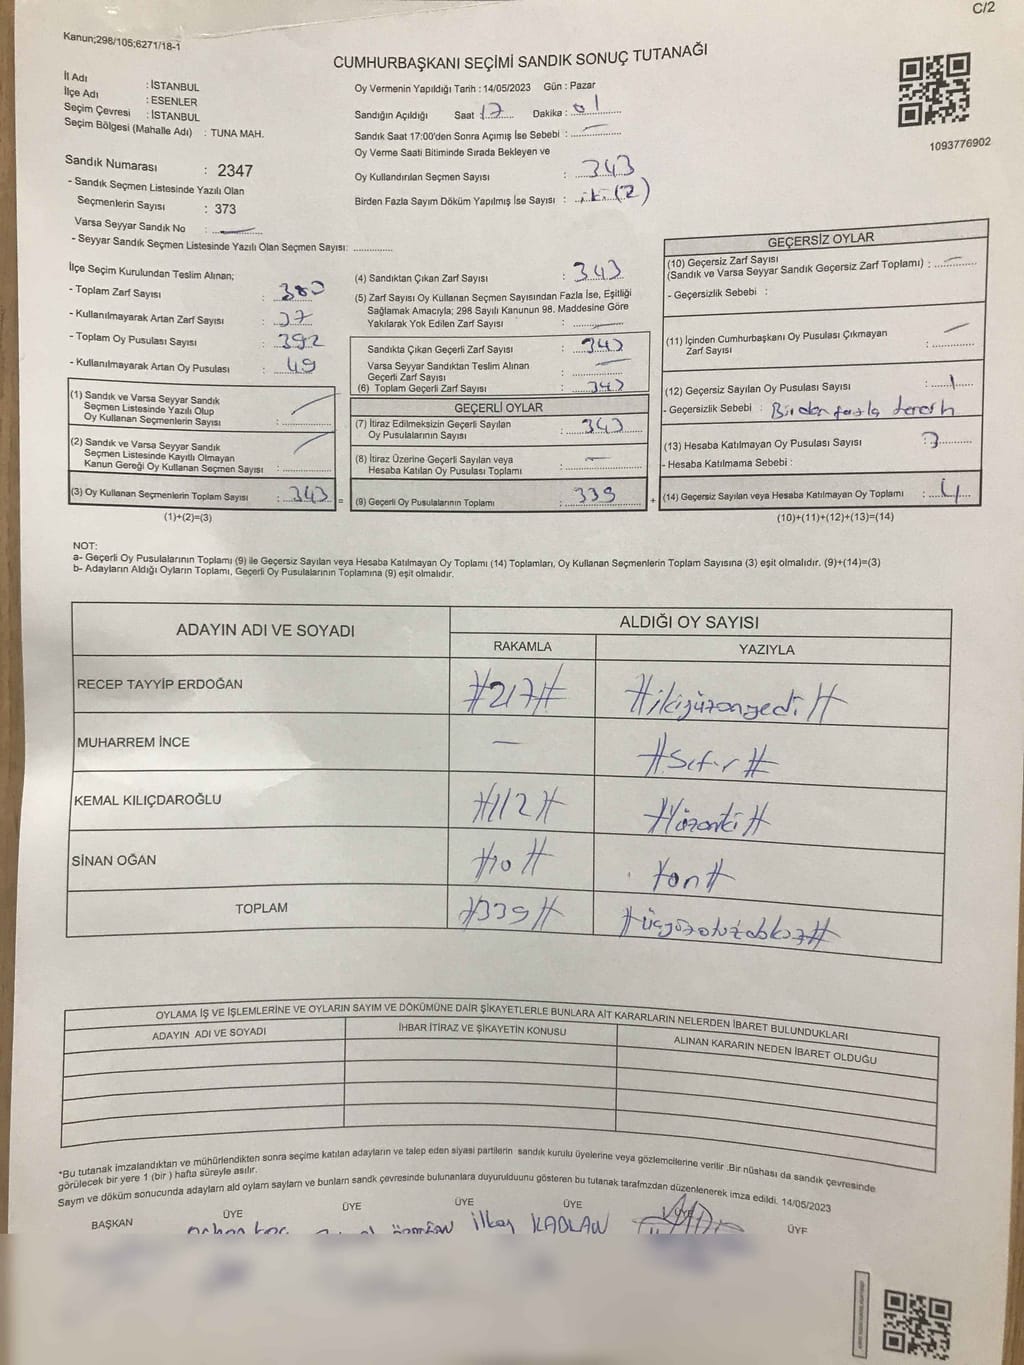 C/2
Kanun;298/105;6271/18-1
CUMHURBAŞKANI SEÇİMİ SANDIK SONUÇ TUTANAĞI
İl Adı : İSTANBUL
İlçe Adı : ESENLER
Seçim Çevresi : İSTANBUL
Seçim Bölgesi (Mahalle Adı) : TUNA MAH.
Oy Vermenin Yapıldığı Tarih : 14/05/2023 Gün : Pazar
Sandığın Açıldığı Saat : 17 Dakika : 01
Sandık Saat 17:00'den Sonra Açımış İse Sebebi : —
Oy Verme Saati Bitiminde Sırada Bekleyen ve
Oy Kullandırılan Seçmen Sayısı : 343
Birden Fazla Sayım Döküm Yapılmış İse Sayısı : iki (2)
1093776902
Sandık Numarası : 2347
- Sandık Seçmen Listesinde Yazılı Olan
Seçmenlerin Sayısı : 373
Varsa Seyyar Sandık No : —
- Seyyar Sandık Seçmen Listesinde Yazılı Olan Seçmen Sayısı: ..............
İlçe Seçim Kurulundan Teslim Alınan;
- Toplam Zarf Sayısı : 380
- Kullanılmayarak Artan Zarf Sayısı : 37
- Toplam Oy Pusulası Sayısı : 392
- Kullanılmayarak Artan Oy Pusulası : 49
(1) Sandık ve Varsa Seyyar Sandık
Seçmen Listesinde Yazılı Olup
Oy Kullanan Seçmenlerin Sayısı :
(2) Sandık ve Varsa Seyyar Sandık
Seçmen Listesinde Kayıtlı Olmayan
Kanun Gereği Oy Kullanan Seçmen Sayısı :
(3) Oy Kullanan Seçmenlerin Toplam Sayısı : 343 =
(1)+(2)=(3)
(4) Sandıktan Çıkan Zarf Sayısı : 343
(5) Zarf Sayısı Oy Kullanan Seçmen Sayısından Fazla İse, Eşitliği
Sağlamak Amacıyla; 298 Sayılı Kanunun 98. Maddesine Göre
Yakılarak Yok Edilen Zarf Sayısı : —
Sandıkta Çıkan Geçerli Zarf Sayısı : 343
Varsa Seyyar Sandıktan Teslim Alınan
Geçerli Zarf Sayısı : —
(6) Toplam Geçerli Zarf Sayısı : 343
GEÇERLİ OYLAR
(7) İtiraz Edilmeksizin Geçerli Sayılan
Oy Pusulalarının Sayısı : 343
(8) İtiraz Üzerine Geçerli Sayılan veya
Hesaba Katılan Oy Pusulası Toplamı : —
(9) Geçerli Oy Pusulalarının Toplamı : 339 +
GEÇERSİZ OYLAR
(10) Geçersiz Zarf Sayısı
(Sandık ve Varsa Seyyar Sandık Geçersiz Zarf Toplamı) : —
- Geçersizlik Sebebi :
(11) İçinden Cumhurbaşkanı Oy Pusulası Çıkmayan
Zarf Sayısı : —
(12) Geçersiz Sayılan Oy Pusulası Sayısı : 1
- Geçersizlik Sebebi : Birden fazla tercih
(13) Hesaba Katılmayan Oy Pusulası Sayısı : 3
- Hesaba Katılmama Sebebi :
(14) Geçersiz Sayılan veya Hesaba Katılmayan Oy Toplamı : 4
(10)+(11)+(12)+(13)=(14)
NOT:
a- Geçerli Oy Pusulalarının Toplamı (9) ile Geçersiz Sayılan veya Hesaba Katılmayan Oy Toplamı (14) Toplamları, Oy Kullanan Seçmenlerin Toplam Sayısına (3) eşit olmalıdır. (9)+(14)=(3)
b- Adayların Aldığı Oyların Toplamı, Geçerli Oy Pusulalarının Toplamına (9) eşit olmalıdır.
ADAYIN ADI VE SOYADI ALDIĞI OY SAYISI
RAKAMLA YAZIYLA
RECEP TAYYİP ERDOĞAN #217# #ikiyüzonyedi#
MUHARREM İNCE — #Sıfır#
KEMAL KILIÇDAROĞLU #112# #Yüzoniki#
SİNAN OĞAN #10# #on#
TOPLAM #339# #üçyüzotuzdokuz#
OYLAMA İŞ VE İŞLEMLERİNE VE OYLARIN SAYIM VE DÖKÜMÜNE DAİR ŞİKAYETLERLE BUNLARA AİT KARARLARIN NELERDEN İBARET BULUNDUKLARI
ADAYIN ADI VE SOYADI İHBAR İTİRAZ VE ŞİKAYETİN KONUSU ALINAN KARARIN NEDEN İBARET OLDUĞU
*Bu tutanak imzalandıktan ve mühürlendikten sonra seçime katılan adayların ve talep eden siyasi partilerin sandık kurulu üyelerine veya gözlemcilerine verilir .Bir nüshası da sandık çevresinde
görülecek bir yere 1 (bir ) hafta süreyle asılır.
Sayım ve döküm sonucunda adayların aldı oyların sayıların ve bunların sandk çevresinde bulunanlara duyurulduunu gösteren bu tutanak tarafmzdan düzenlenerek imza edildi. 14/05/2023
BAŞKAN ÜYE ÜYE ÜYE ÜYE ÜYE ÜYE
İlkay KAPLAN